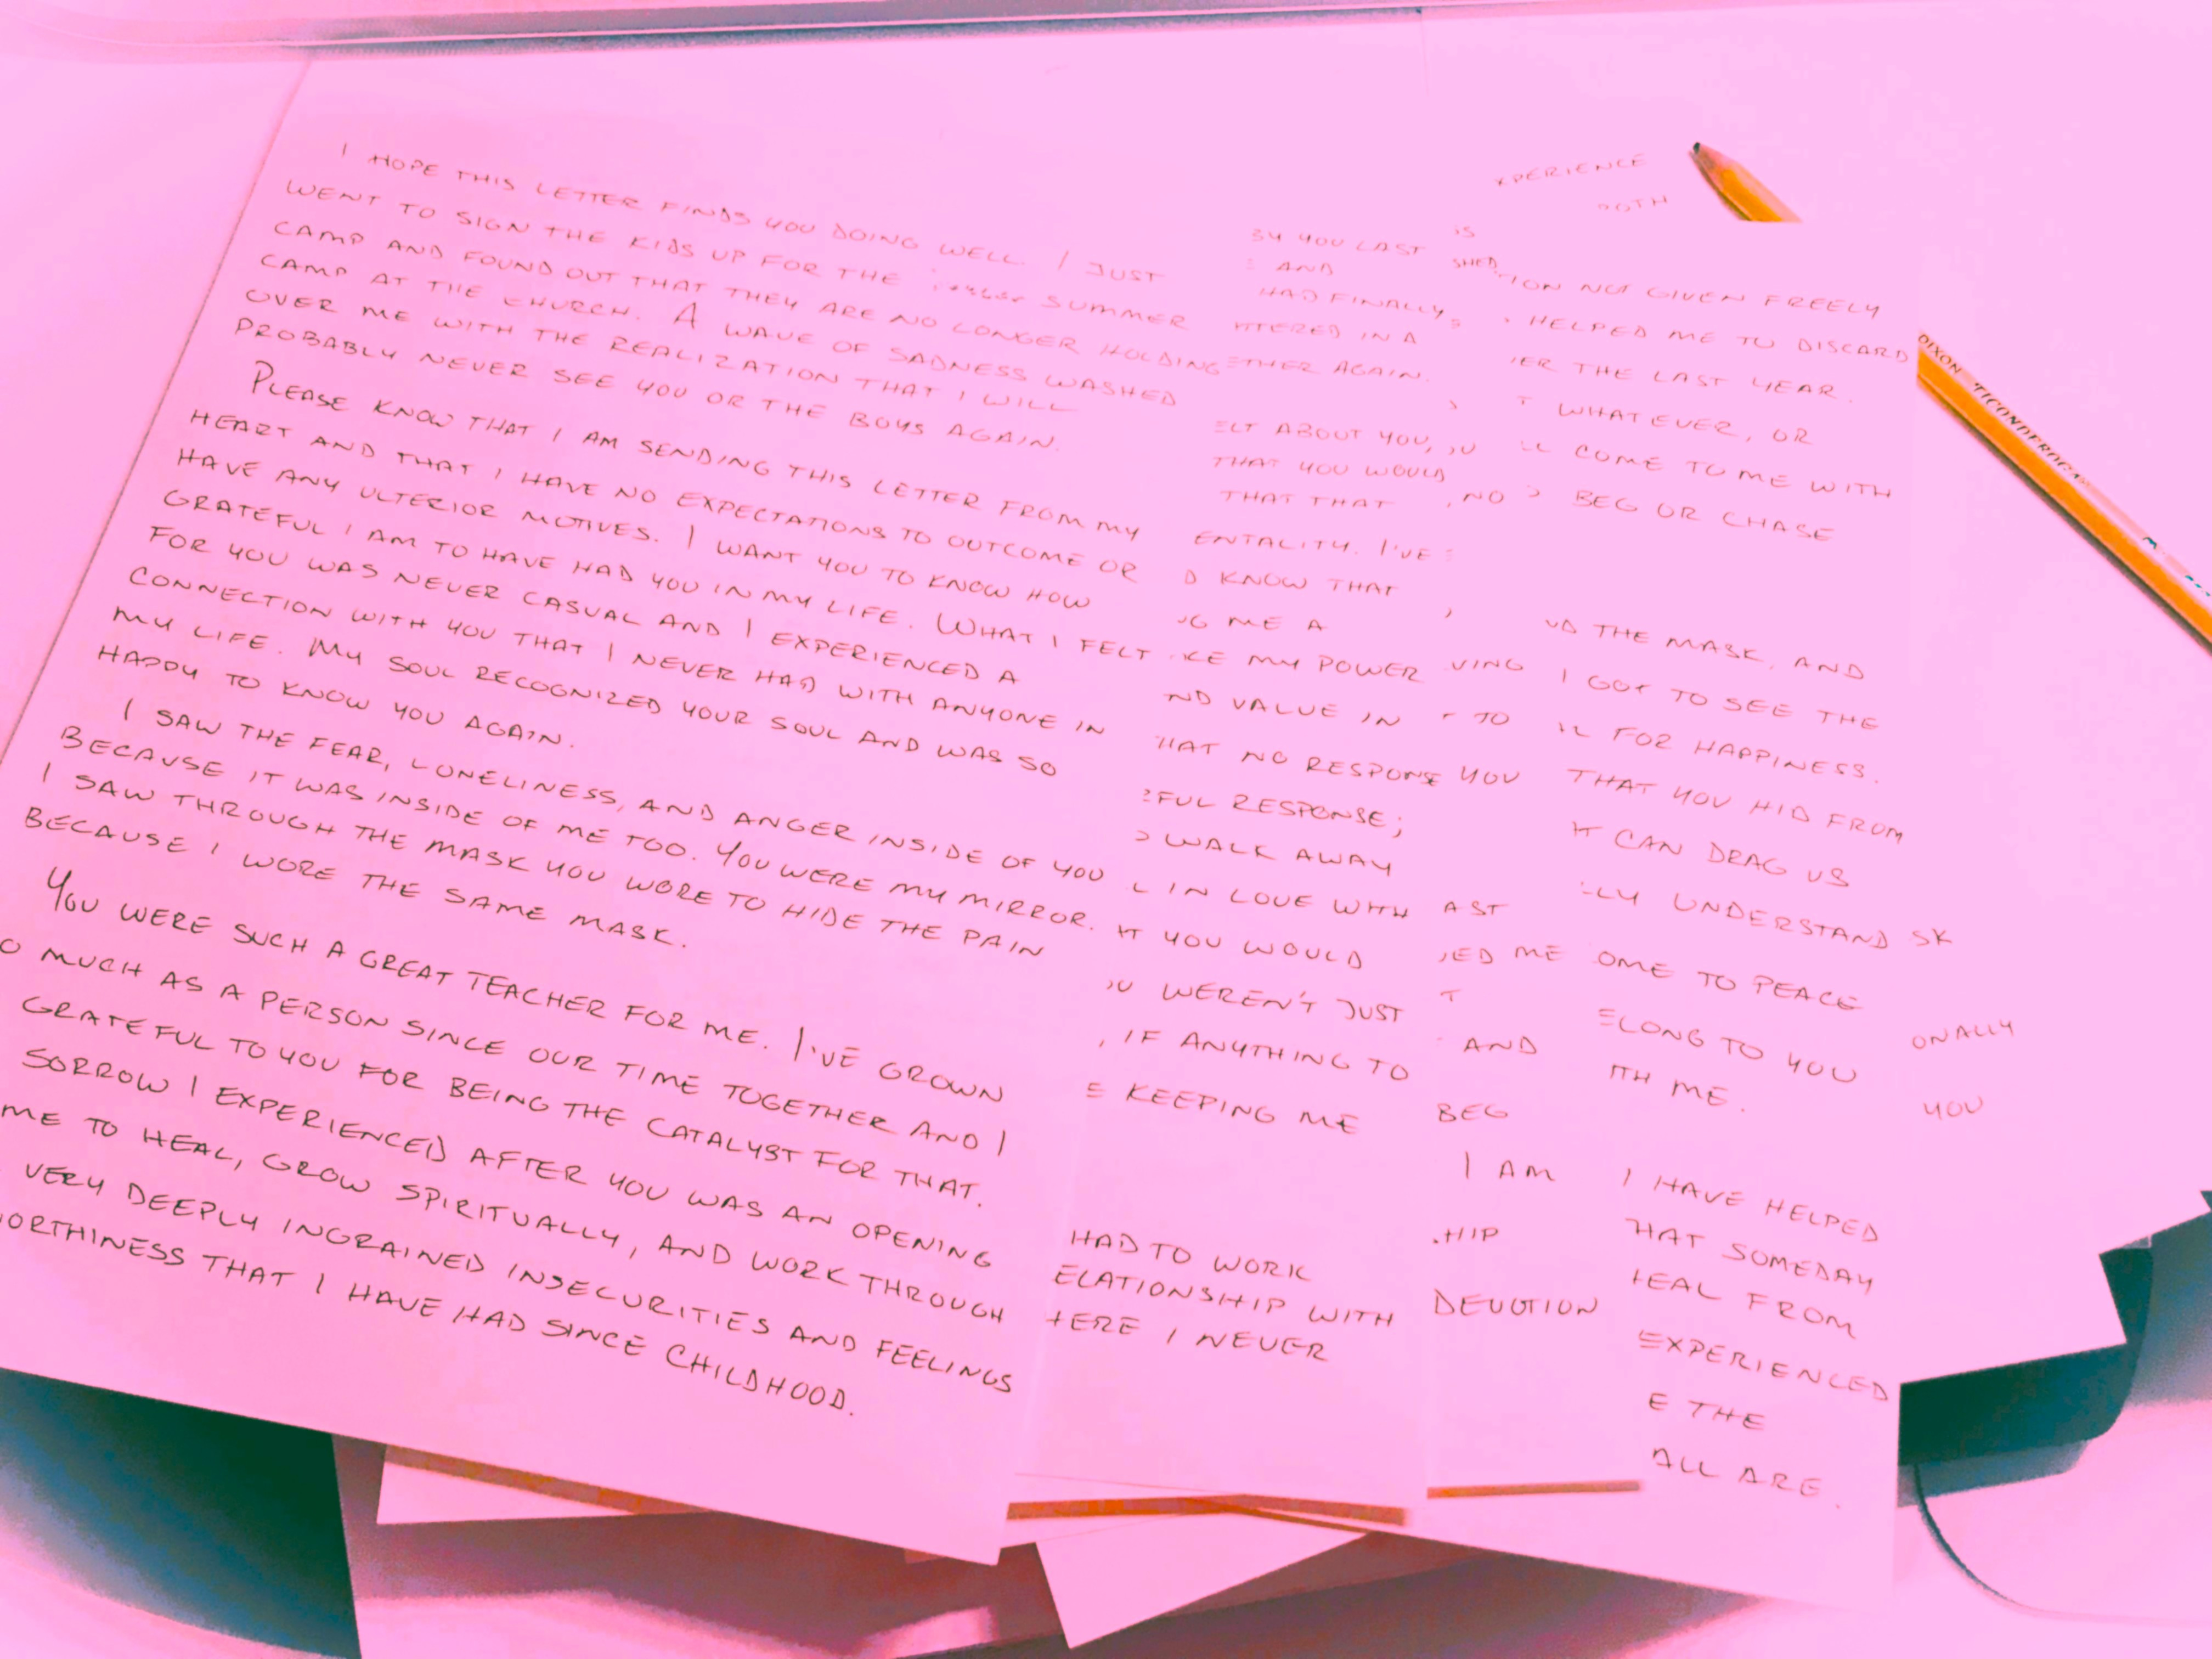 I HOPE THIS LETTER FINDS YOU DOING WELL. I JUST
WENT TO SIGN THE KIDS UP FOR THE SUMMER
CAMP AND FOUND OUT THAT THEY ARE NO LONGER HOLDING
CAMP AT THE CHURCH. A WAVE OF SADNESS WASHED
OVER ME WITH THE REALIZATION THAT I WILL
PROBABLY NEVER SEE YOU OR THE BOYS AGAIN.
PLEASE KNOW THAT I AM SENDING THIS LETTER FROM MY
HEART AND THAT I HAVE NO EXPECTATIONS TO OUTCOME OR
HAVE ANY ULTERIOR MOTIVES. I WANT YOU TO KNOW HOW
GRATEFUL I AM TO HAVE HAD YOU IN MY LIFE. WHAT I FELT
FOR YOU WAS NEVER CASUAL AND I EXPERIENCED A
CONNECTION WITH YOU THAT I NEVER HAD WITH ANYONE IN
MY LIFE. MY SOUL RECOGNIZED YOUR SOUL AND WAS SO
HAPPY TO KNOW YOU AGAIN.
I SAW THE FEAR, LONELINESS, AND ANGER INSIDE OF YOU
BECAUSE IT WAS INSIDE OF ME TOO. YOU WERE MY MIRROR.
I SAW THROUGH THE MASK YOU WORE TO HIDE THE PAIN
BECAUSE I WORE THE SAME MASK.
YOU WERE SUCH A GREAT TEACHER FOR ME. I'VE GROWN
O MUCH AS A PERSON SINCE OUR TIME TOGETHER AND I
GRATEFUL TO YOU FOR BEING THE CATALYST FOR THAT.
SORROW I EXPERIENCED AFTER YOU WAS AN OPENING
ME TO HEAL, GROW SPIRITUALLY, AND WORK THROUGH
VERY DEEPLY INGRAINED INSECURITIES AND FEELINGS
ORTHINESS THAT I HAVE HAD SINCE CHILDHOOD.
BY YOU LAST
AND
HAD FINALLY
TTERED IN A
ETHER AGAIN.
ELT ABOUT YOU,
THAT YOU WOULD
THAT THAT
ENTALITY. I'VE
D KNOW THAT
NG ME A
KE MY POWER
ND VALUE IN
HAT NO RESPONSE
FUL RESPONSE;
WALK AWAY
L IN LOVE WITH
T YOU WOULD
U WEREN'T JUST
, IF ANYTHING TO
E KEEPING ME
HAD TO WORK
ELATIONSHIP WITH
HERE I NEVER
IS
SHED
, NO
VING
TO
YOU
AST
ED ME
T
AND
BEG
I AM
HIP
DEVOTION
XPERIENCE
BOTH
ION NOT GIVEN FREELY
HELPED ME TO DISCARD
ER THE LAST YEAR.
T WHATEVER, OR
LL COME TO ME WITH
BEG OR CHASE
ND THE MASK, AND
I GOT TO SEE THE
FOR HAPPINESS.
THAT YOU HID FROM
T CAN DRAG US
LLY UNDERSTAND
OME TO PEACE
ELONG TO YOU
ITH ME.
I HAVE HELPED
HAT SOMEDAY
HEAL FROM
EXPERIENCED
E THE
ALL ARE.
SK
ONALLY
YOU
DIXON TICONDEROGA